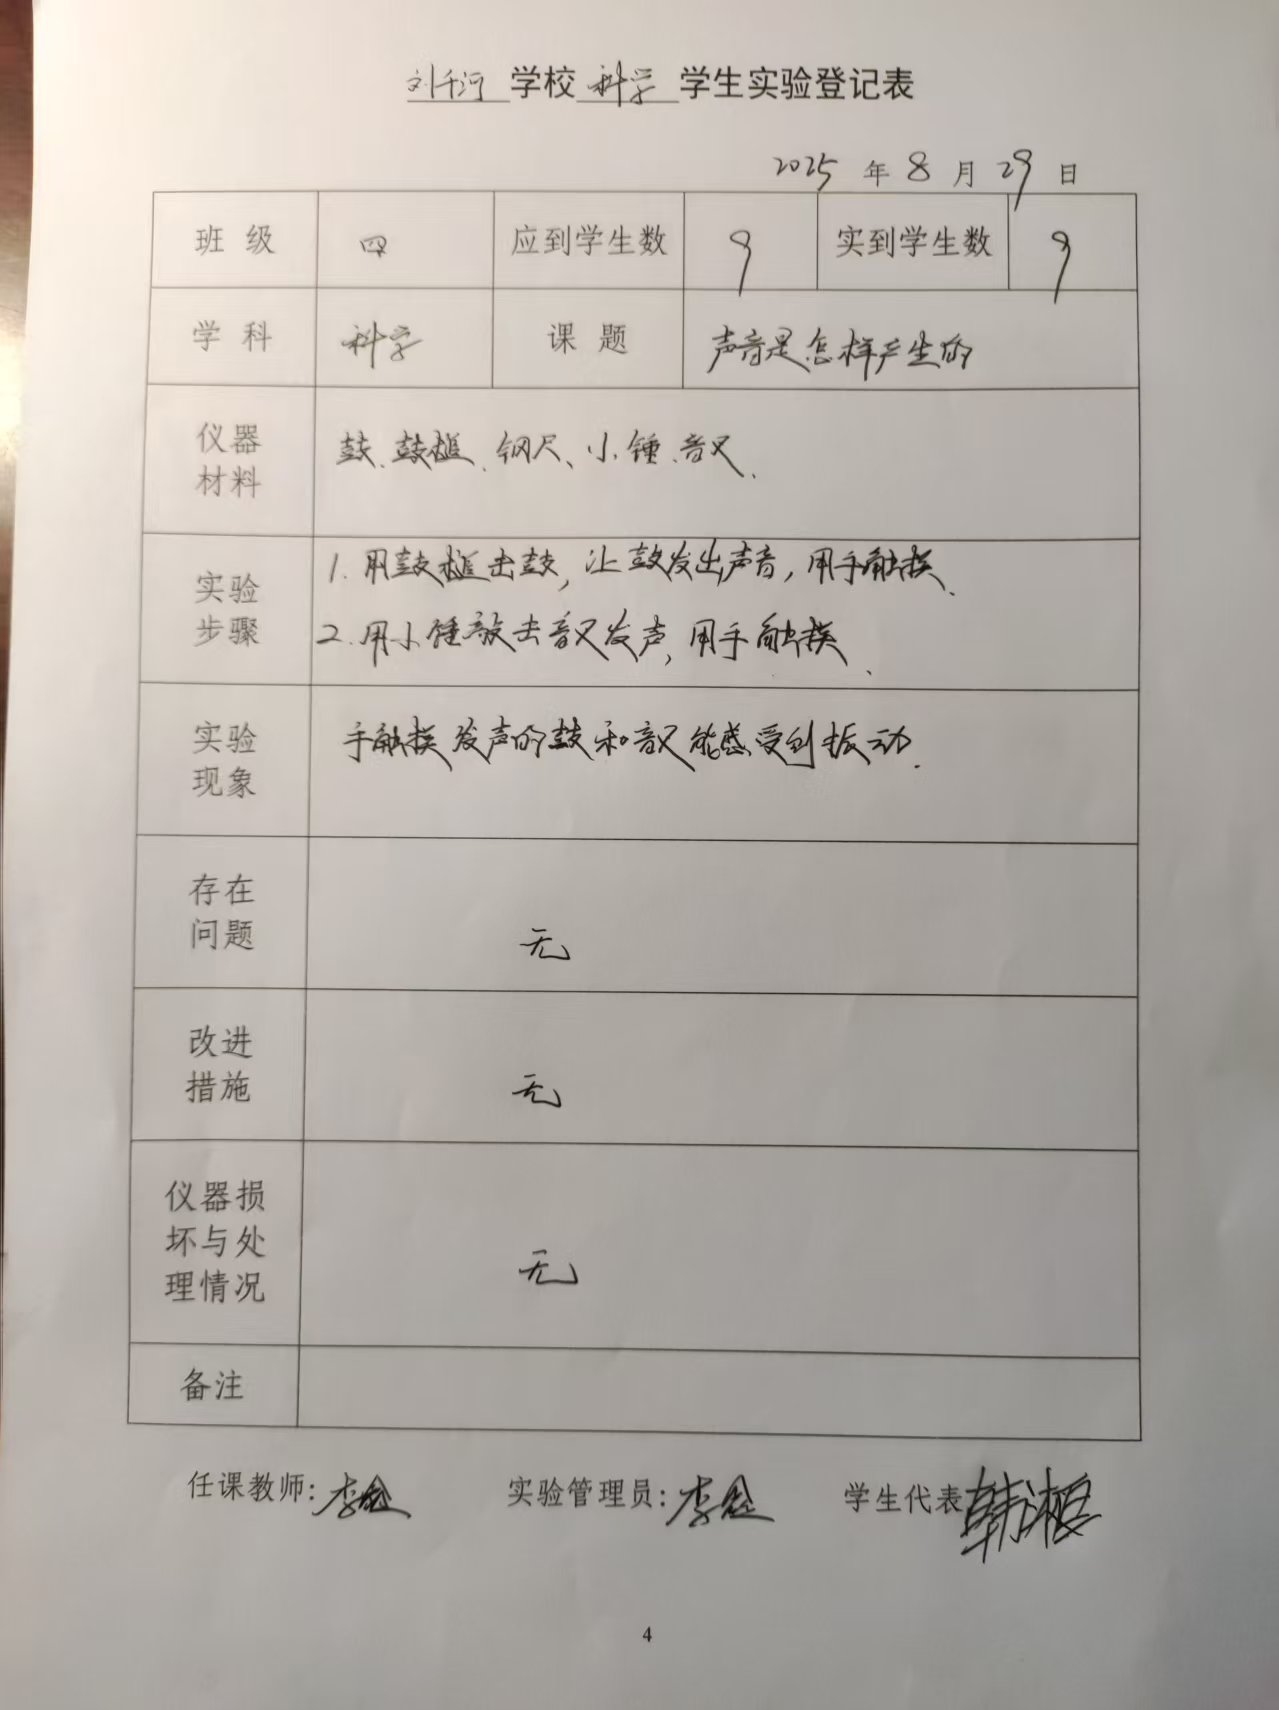 刘千河 学校 科学 学生实验登记表
2025 年 8 月 29 日
班级 四 应到学生数 9 实到学生数 9
学科 科学 课题 声音是怎样产生的
仪器材料 鼓、鼓槌、钢尺、小锤、音叉、
实验步骤
1. 用鼓槌击鼓，让鼓发出声音，用手触摸、
2. 用小锤敲击音叉发声，用手触摸、
实验现象 手触摸发声的鼓和音叉能感受到振动.
存在问题 无
改进措施 无
仪器损坏与处理情况 无
备注
任课教师: 李 实验管理员: 李 学生代表 韩湘
4